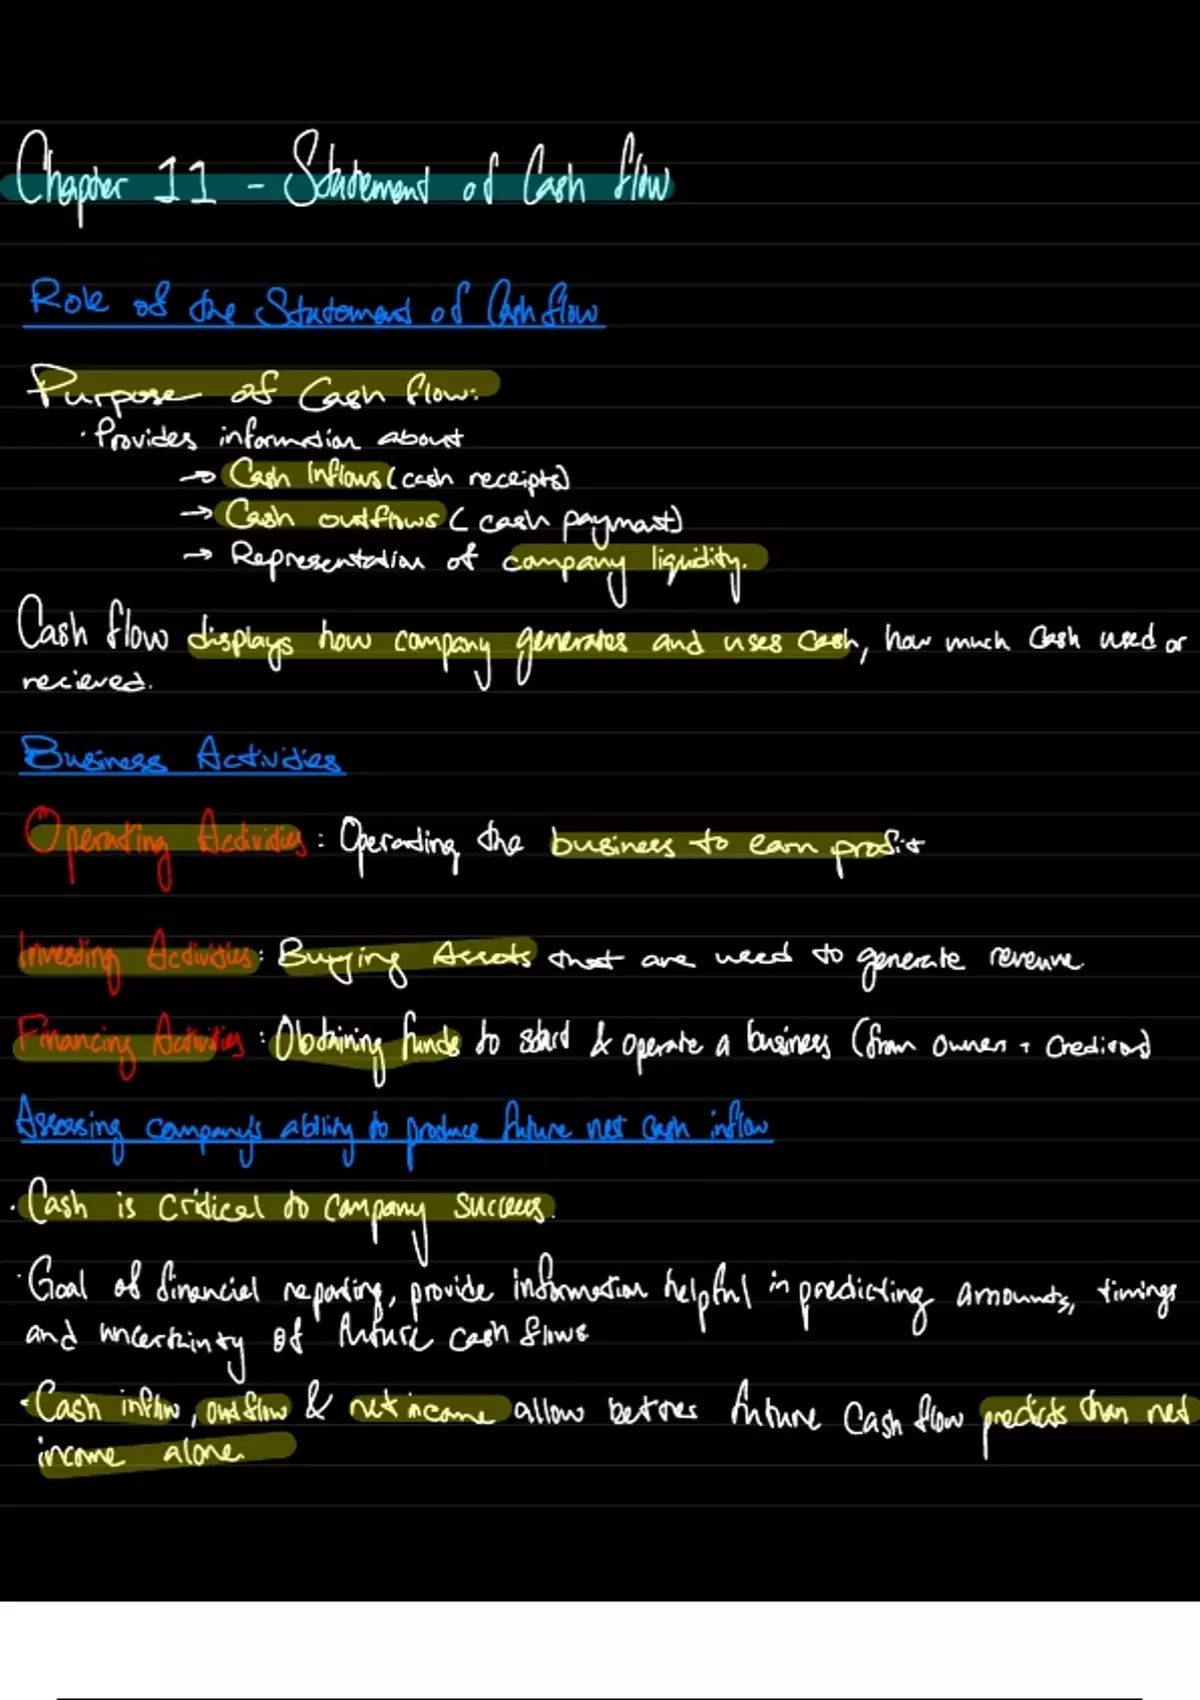 Chapter 11 - Statement of Cash flow
Role of the Statement of Cash flow
Purpose of Cash flow:
· Provides information about
→ Cash Inflows (cash receipts)
→ Cash outflows (cash payment)
→ Representation of company liquidity.
Cash flow displays how company generates and uses cash, how much cash used or
recieved.
Business Activities
Operating Activities: Operating the business to earn profit
Investing Activities: Buying Assets that are used to generate revenue
Financing Activities: Obtaining funds to start & operate a business (from owner + Creditors)
Assessing company's ability to produce future net cash inflow
· Cash is critical to company success.
· Goal of financial reporting, provide information helpful in predicting amounts, timings
and uncertainty of future cash flows
· Cash inflow, outflow & net income allow better future cash flow predicts than net
income alone.